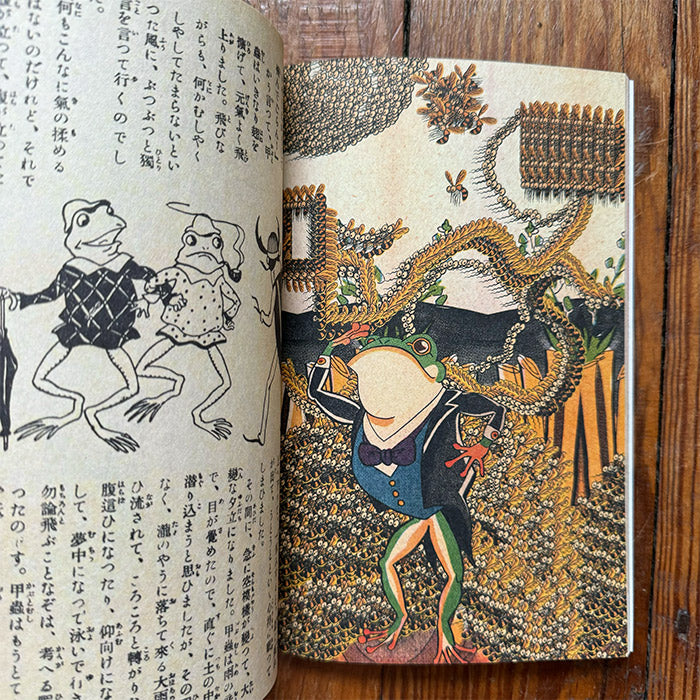 う言つて、甲
蟲はいきなり翅を
擴げて、元氣よく飛
上りました。飛びな
がらも、何かむしやく
しやしてたまらないとい
つた風に、ぶつぶつと獨
言を言つて行くのでし
た。
何もこんなに氣の揉める
はないのだけれど、それで
が立つて、腹が立つて
しまひました。
その間に、急に空模樣が變つて、大
變な夕立になりました。甲蟲は雨の
で、目が覺めたので、直ぐに土の中
潜り込まうと思ひましたが、その
なく、瀧のやうに落ちて來る大雨
ひ流されて、ころころと轉がり
腹這ひになつたり、仰向けにな
して、夢中になつて泳いで行き
勿論飛ぶことなぞは、考へる
つたのです。甲蟲はもうとて